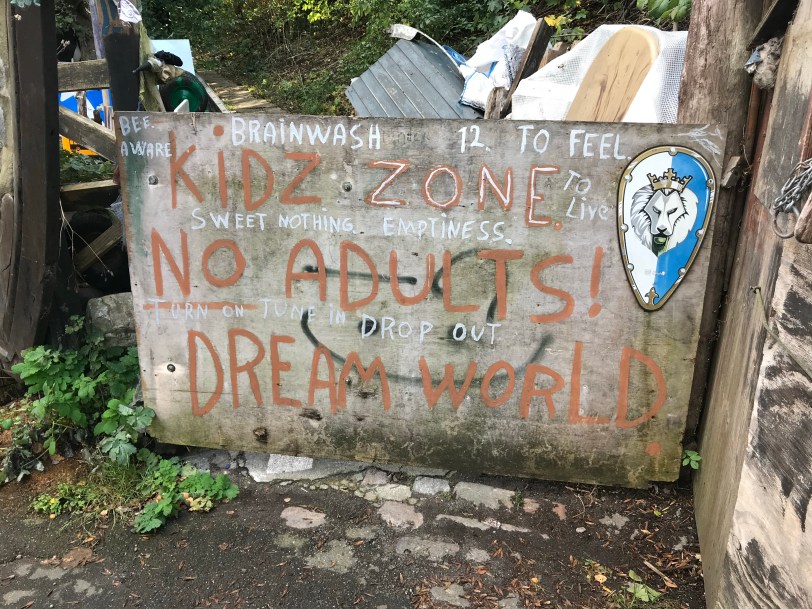 BEE AWARE
BRAINWASH 12. TO FEEL.
KIDZ ZONE.
TO Live
SWEET NOTHING EMPTINESS.
NO ADULTS!
TURN ON TUNE IN DROP OUT
DREAM WORLD.